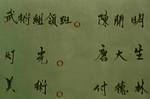 武術組領班 陳朋明
灯光 唐大生
美術 付德林